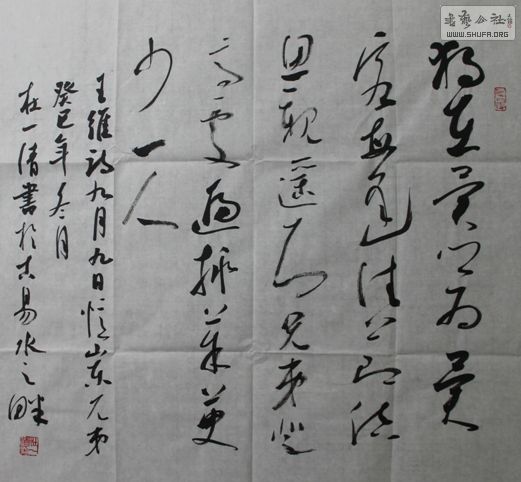 独在異乡为異
客每逢佳节倍
思親遥知兄弟登
高處遍插茱萸
少一人
王維詩九月九日憶山東兄弟
癸巳年冬月
杜一清書於古易水之畔
書藝公社
WWW.SHUFA.ORG